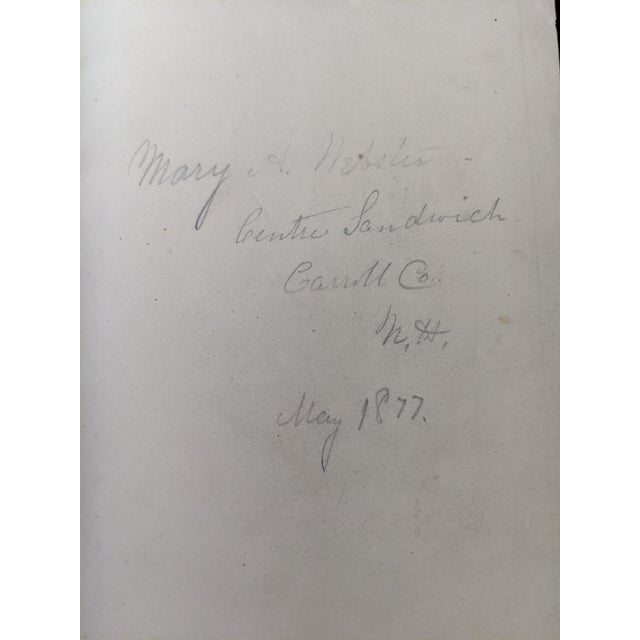 Mary A. Webster
Centre Sandwich
Carroll Co.
N.H.
May 1877.